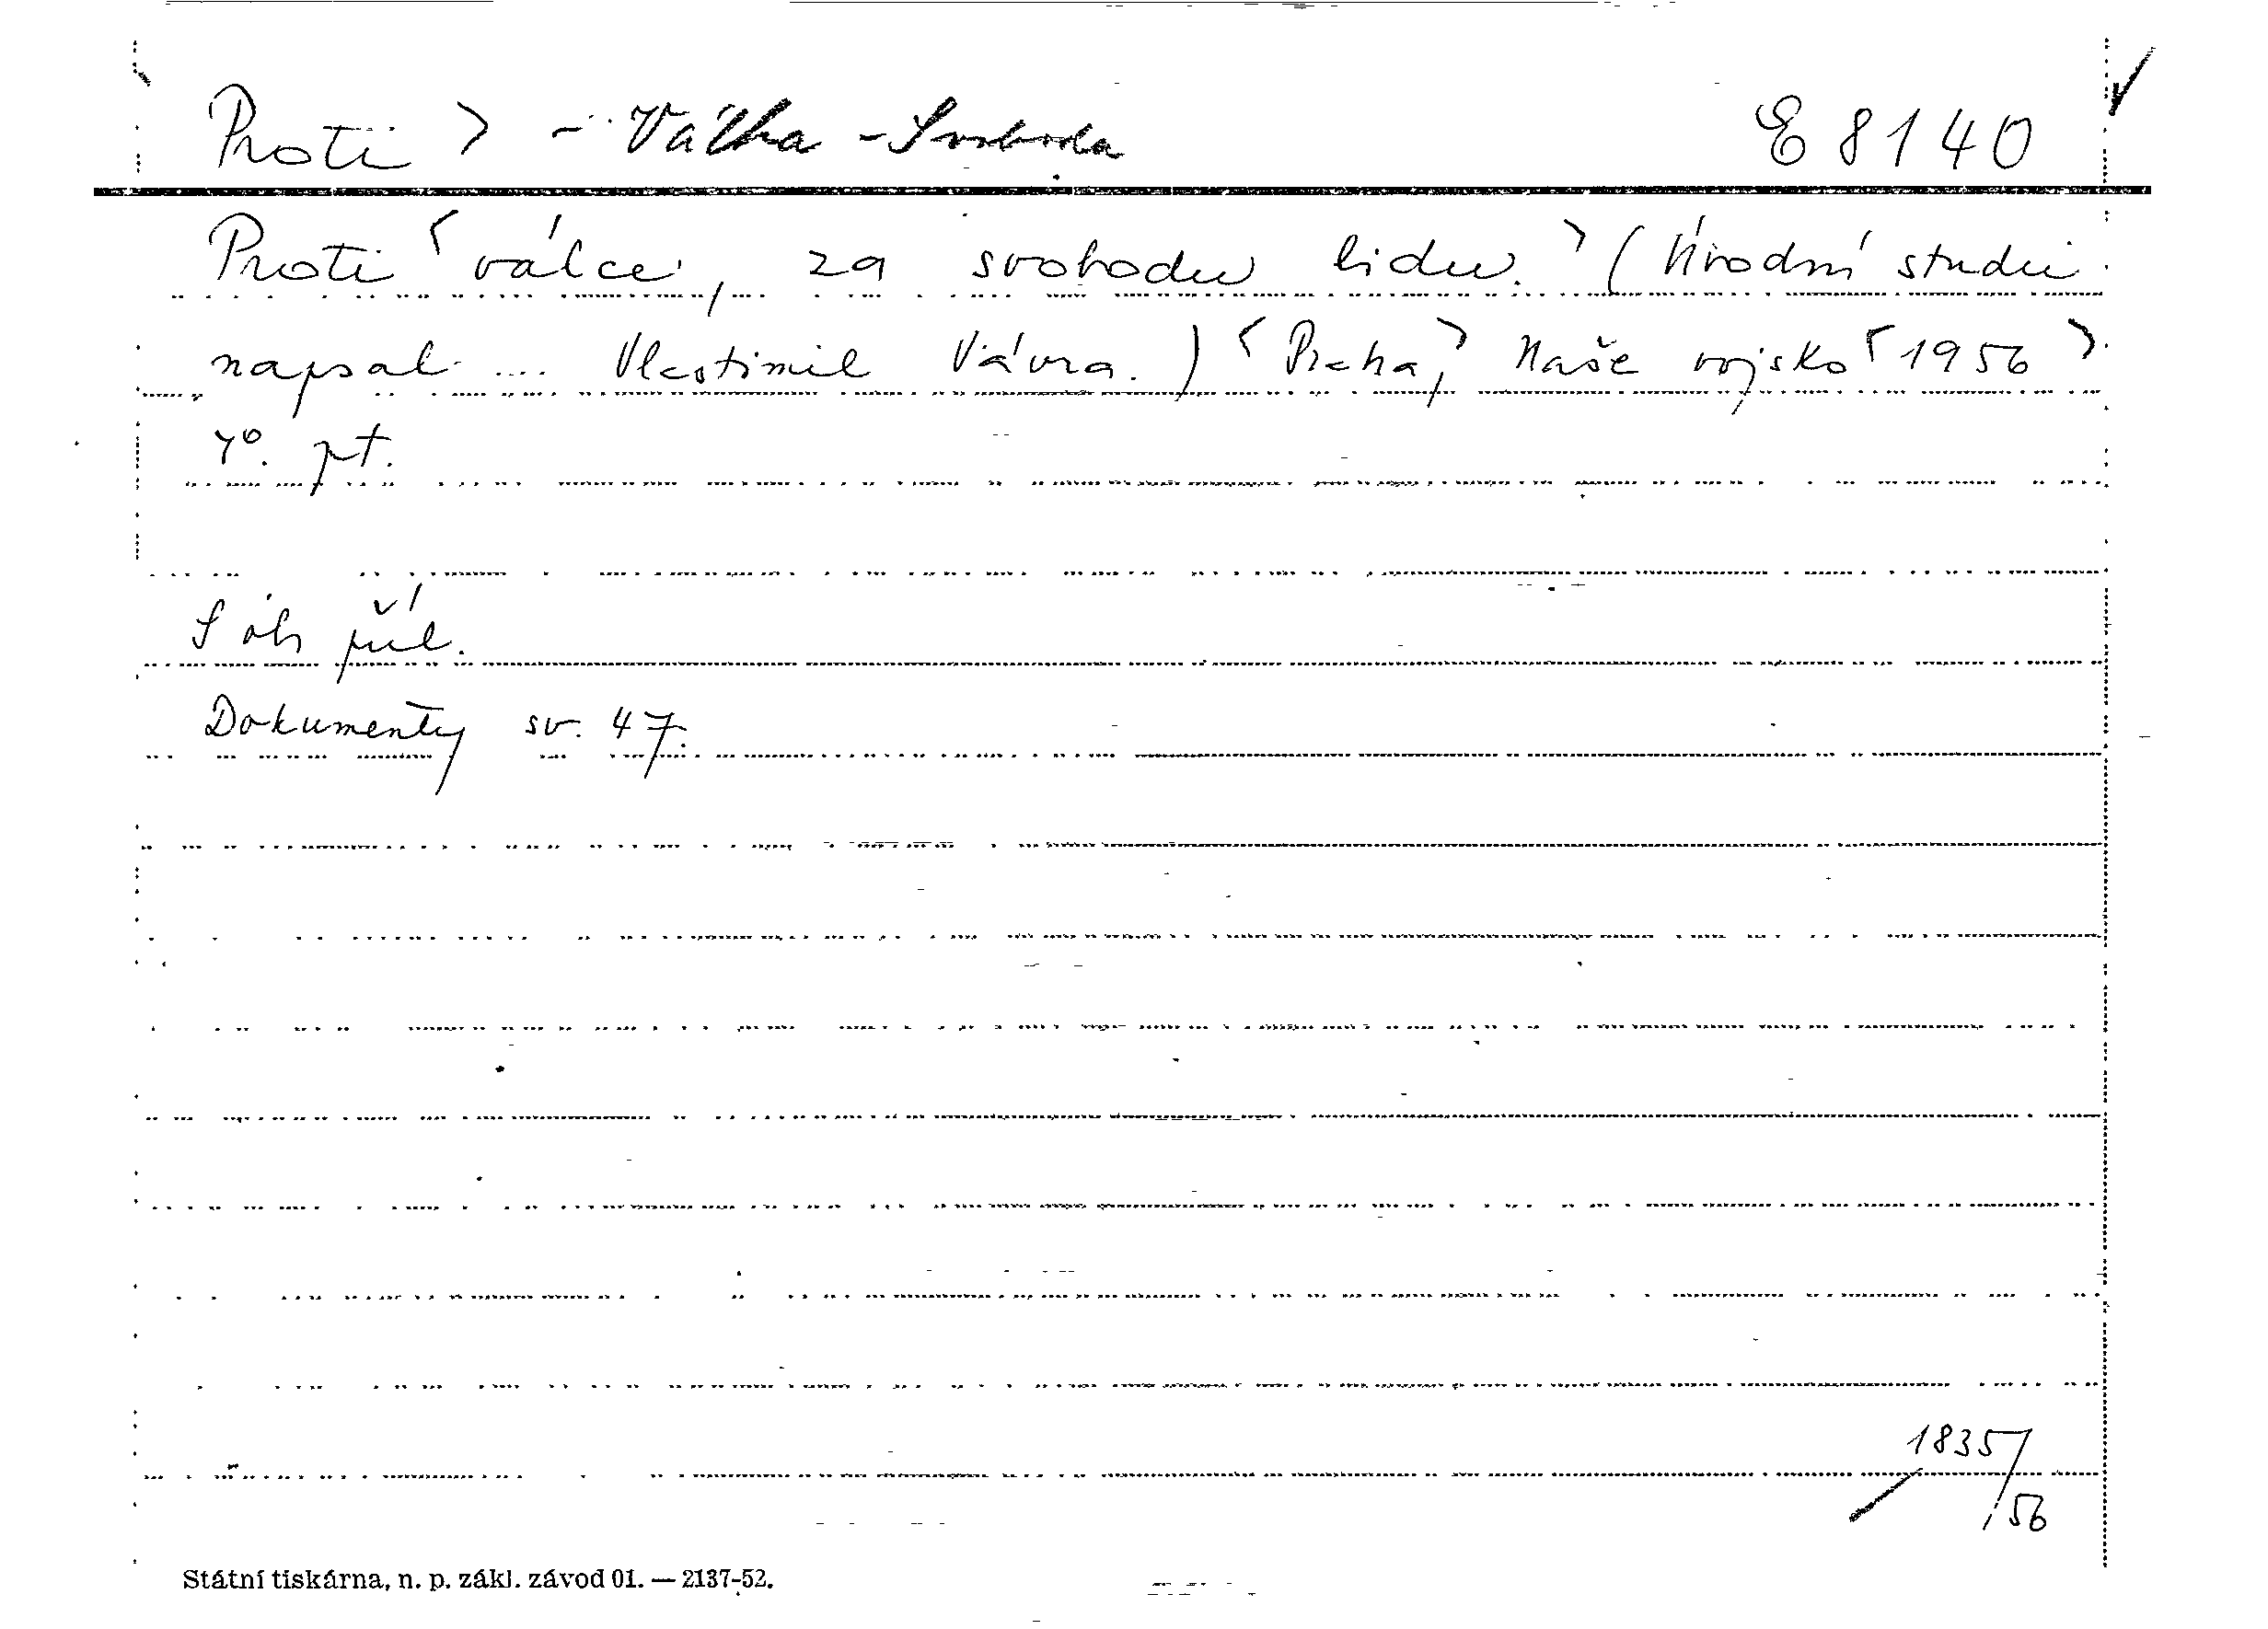 Proti > - Válka - Svoboda E 8140
Proti < válce, za svobodu lidu. > (Úvodní studii
napsal .... Vlastimil Vávra.) < Praha, > Naše vojsko < 1956 >
pt.
S obr příl.
Dokumenty sv. 47.
1835/56
Státní tiskárna, n. p. zákl. závod 01. — 2137-52.